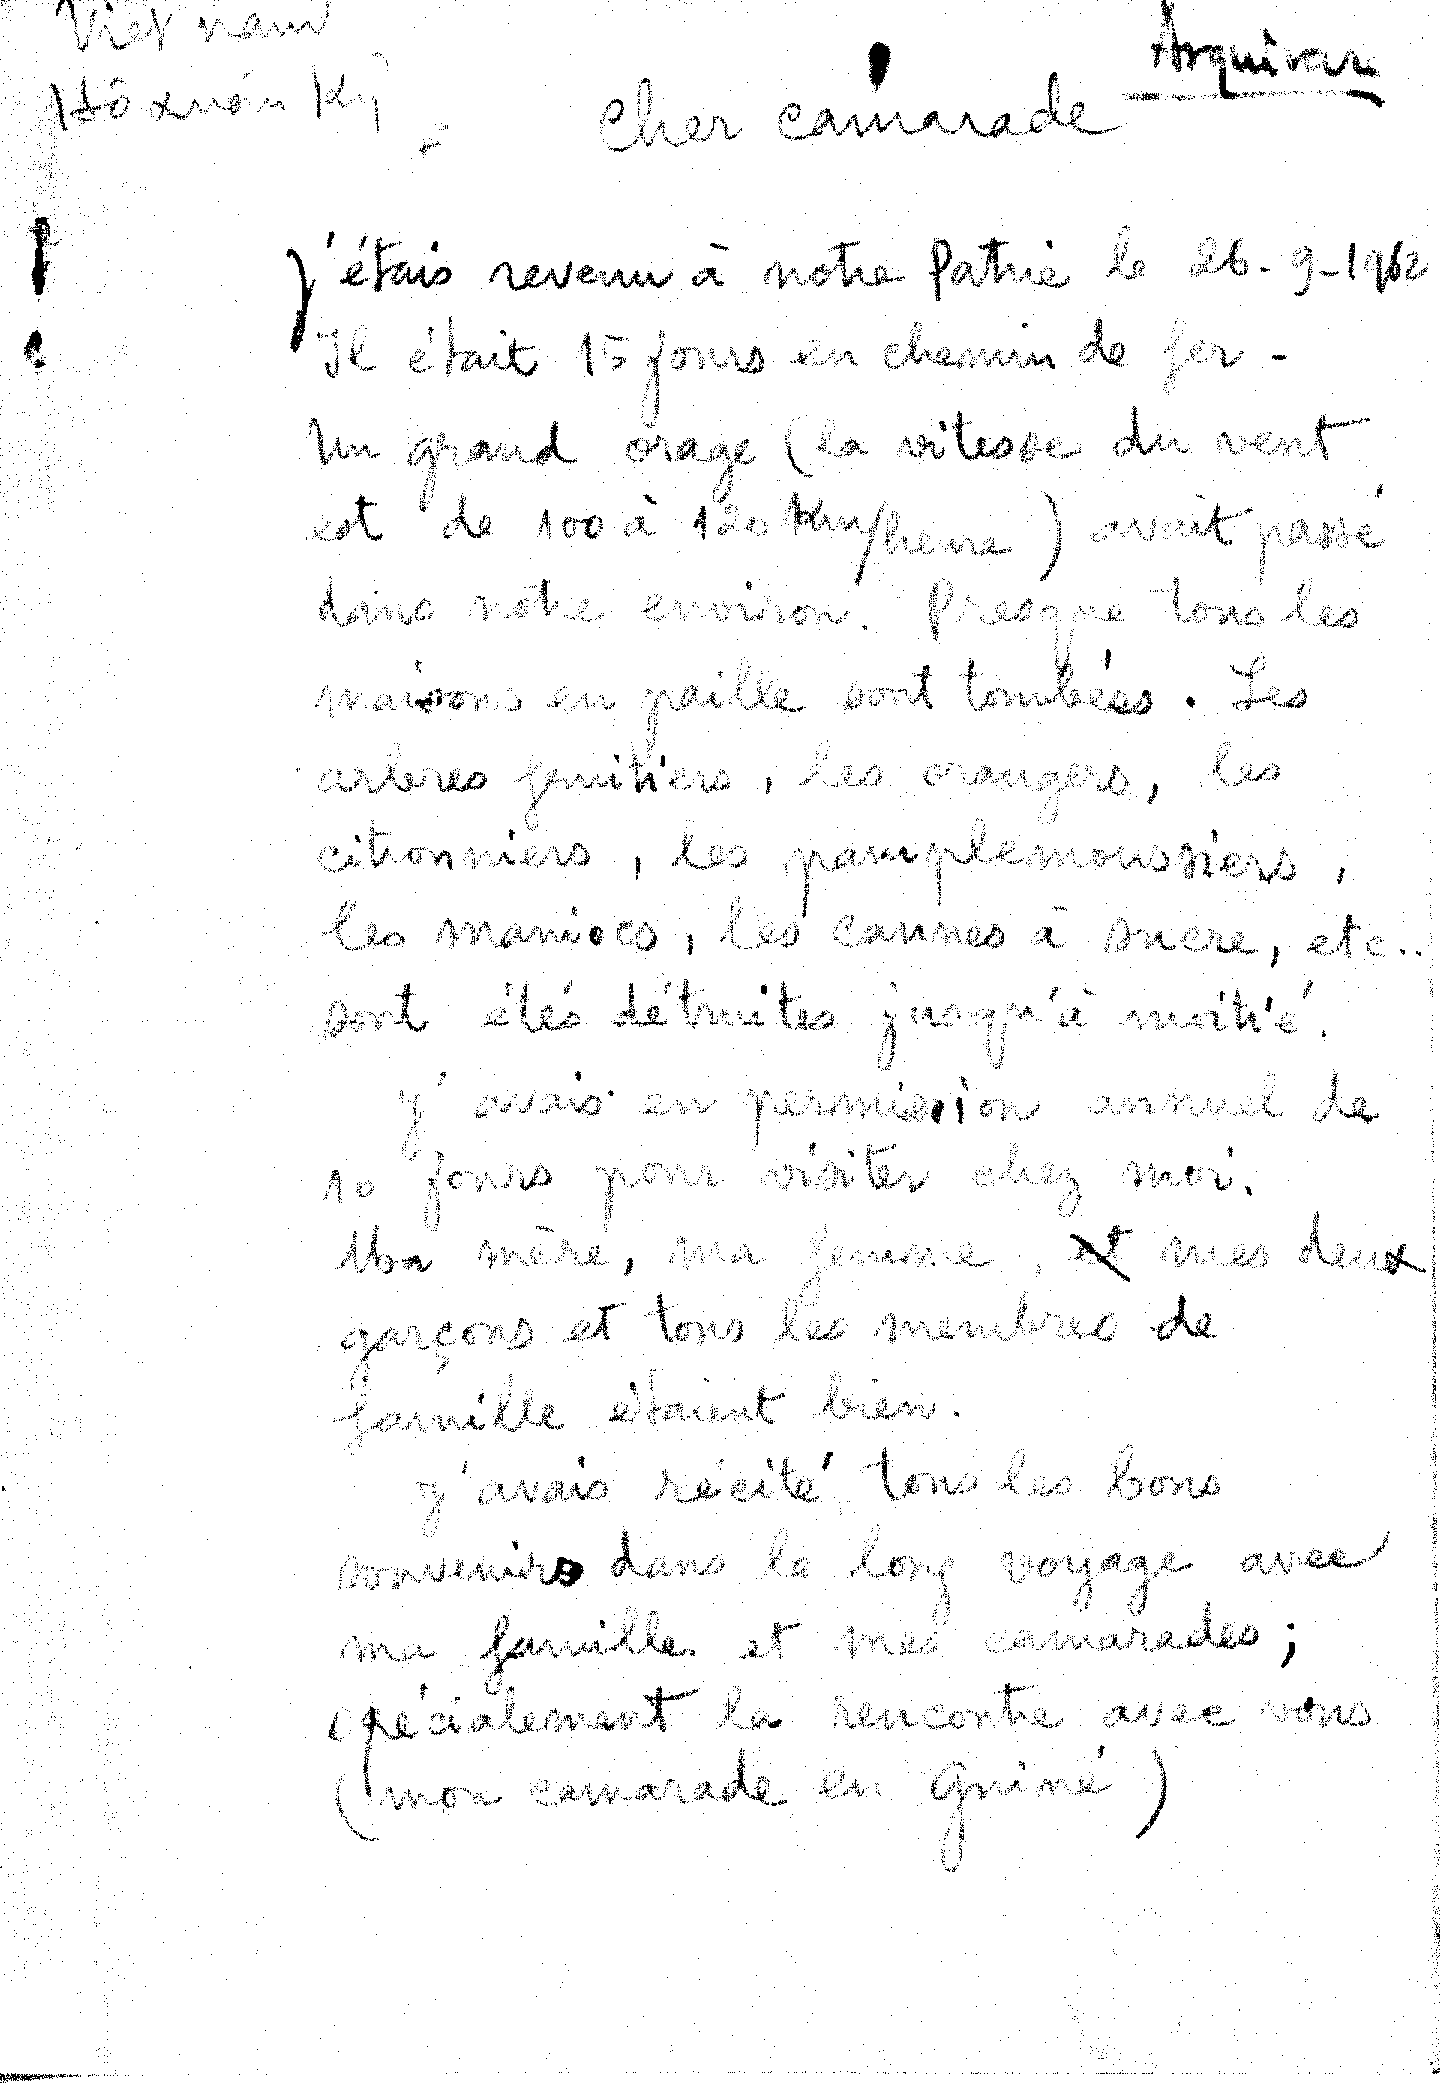 Viet nam
Hô xuân Kỳ
Arquivar
Cher camarade
J'étais revenu à notre Patrie le 26-9-1962
Il était 15 jours en chemin de fer -
Un grand orage (la vitesse du vent
est de 100 à 120 Km/heure) avait passé
dans notre environ. Presque tous les
maisons en paille sont tombées. Les
arbres fruitiers, les orangers, les
citronniers, les pamplemoussiers,
les maniocs, les cannes à sucre, etc..
sont étés détruites jusqu'à moitié.
J'avais en permission annuel de
10 jours pour visiter chez moi.
Ma mère, ma femme, et mes deux
garçons et tous les membres de
famille étaient bien.
J'avais récité tous les bons
souvenirs dans le long voyage avec
ma famille et mes camarades;
spécialement la rencontre avec vous
(mon camarade en Guiné)